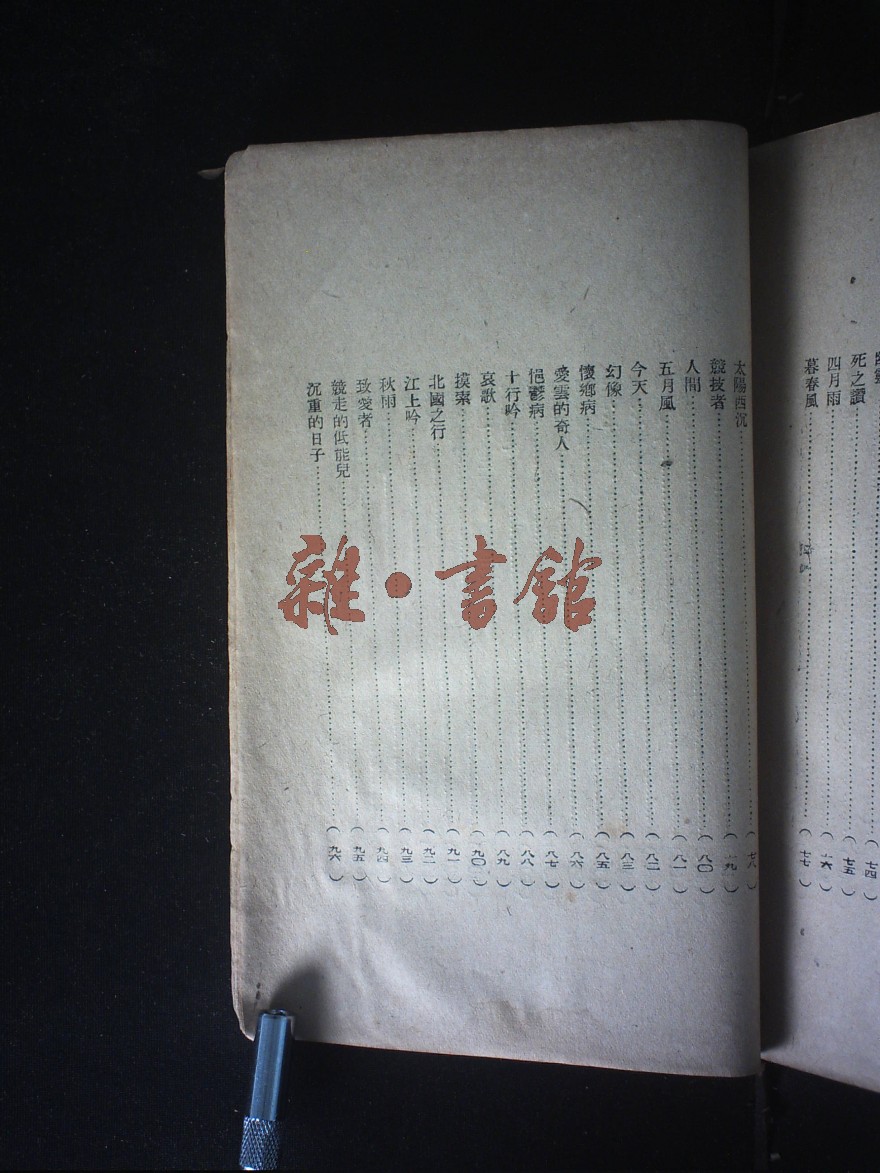 ……（七四）
死之讚……（七五）
四月雨……（七六）
暮春風……（七七）
太陽西沉……（七八）
競技者……（七九）
人間……（八〇）
五月風……（八一）
今天……（八二）
幻像……（八三）
懷鄉病……（八五）
愛雲的奇人……（八六）
悒鬱病……（八七）
十行吟……（八八）
哀歌……（八九）
摸索……（九〇）
北國之行……（九一）
江上吟……（九二）
秋雨……（九三）
致愛者……（九四）
競走的低能兒……（九五）
沉重的日子……（九六）
雜·書館